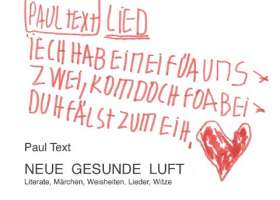 PAUL TEXT LIED
IECH HAB EINEI FÜA UNS
ZWEI, KOM DOCH FOABEI
DUH FÄLST ZUM EIH.
Paul Text
NEUE GESUNDE LUFT
Literate, Märchen, Weisheiten, Lieder, Witze